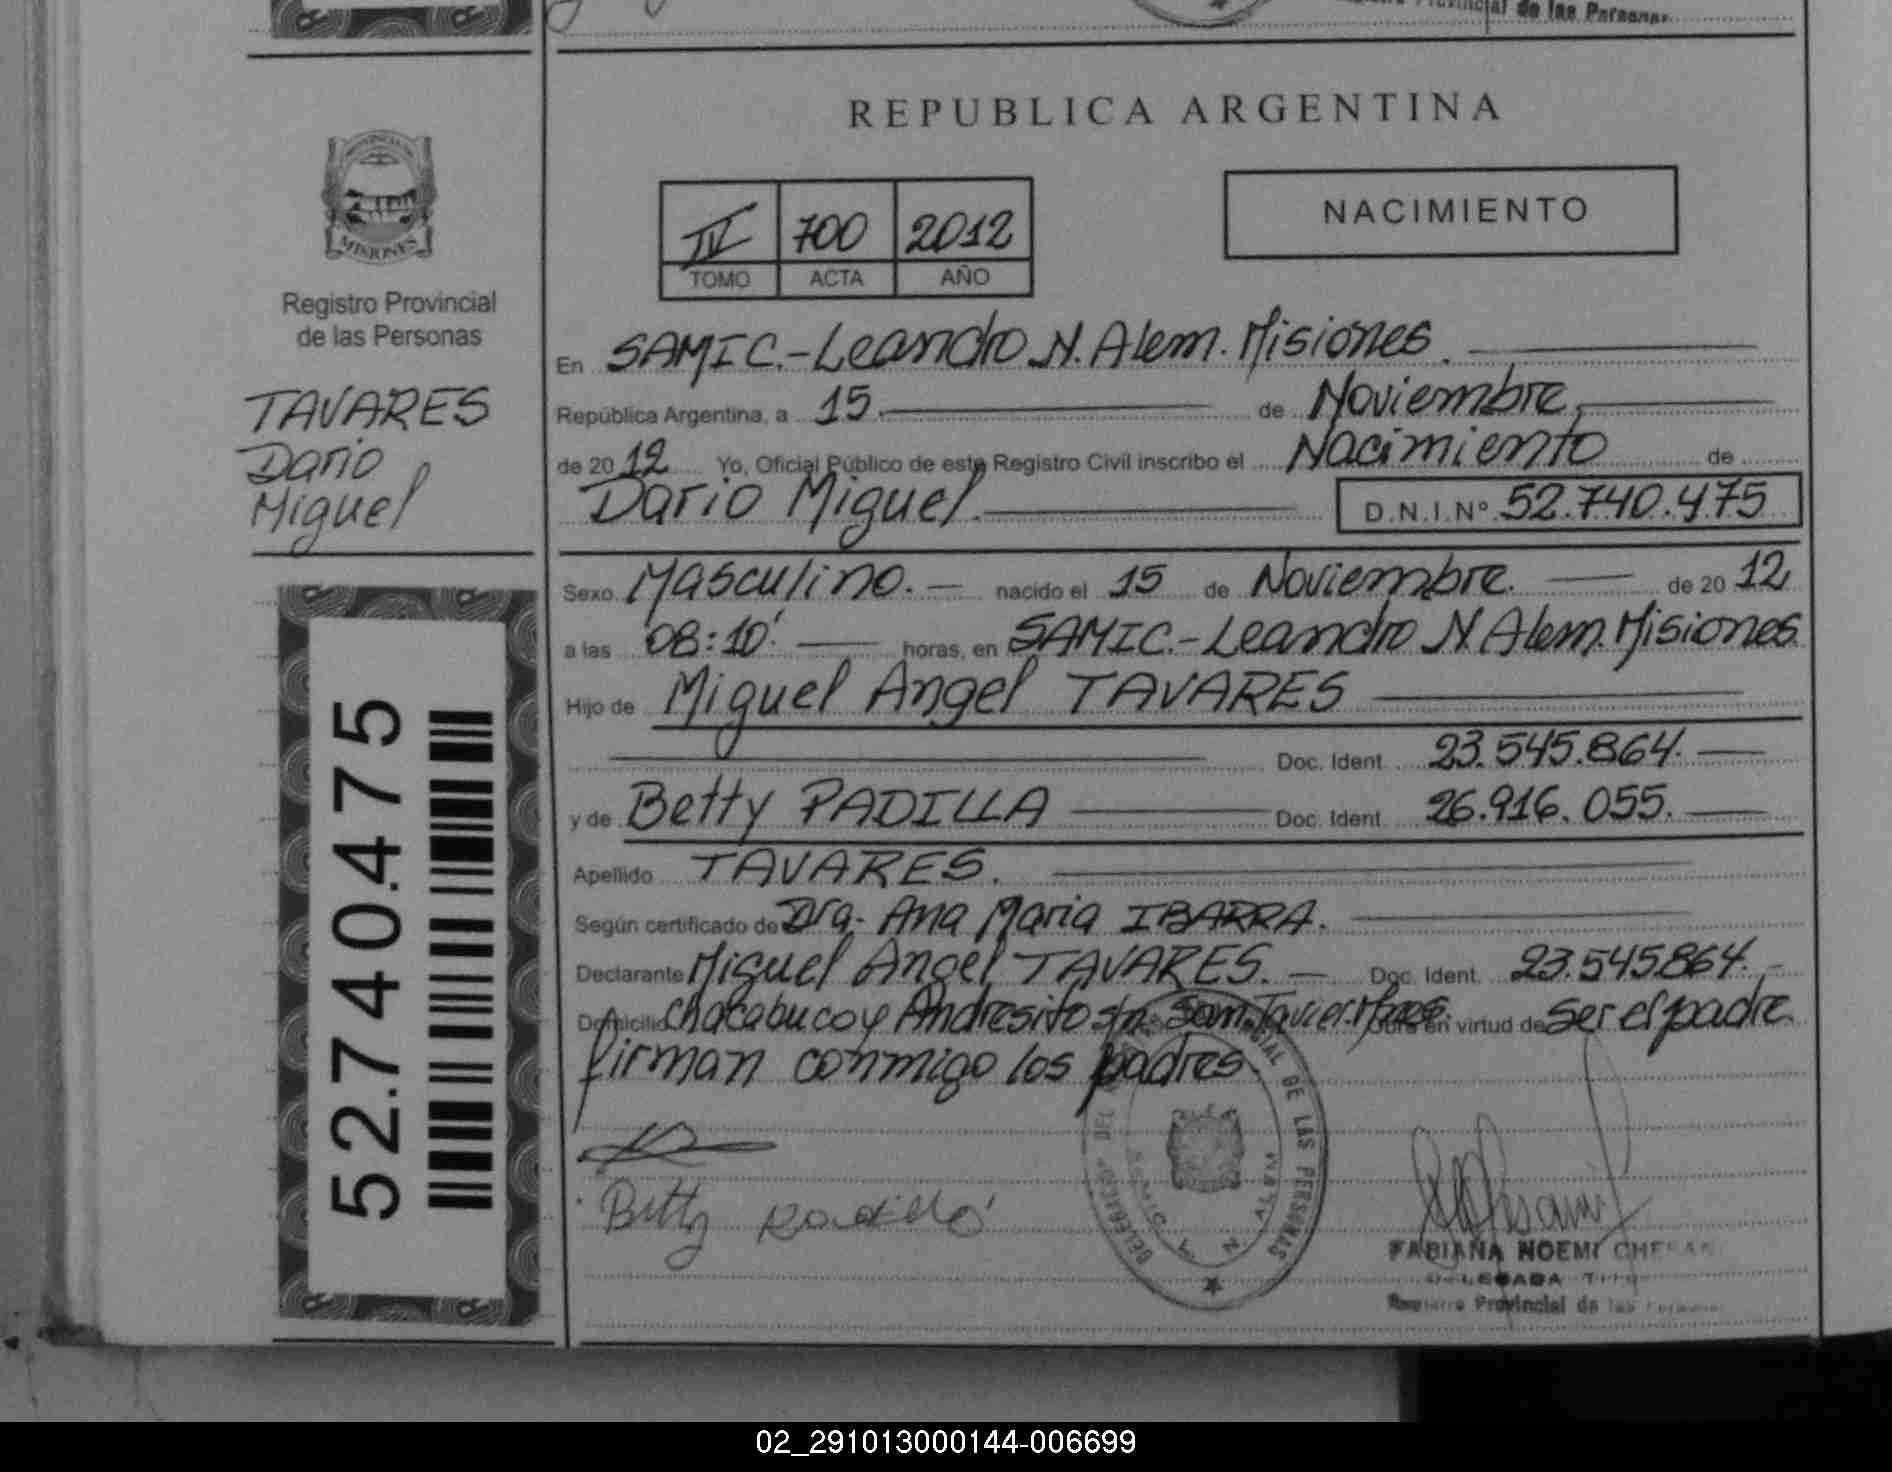 Provincial de las Personas
REPUBLICA ARGENTINA
PROVINCIA DE
MISIONES
Registro Provincial
de las Personas
TAVARES
Dario
Miguel
52.740.475
IV 700 2012
TOMO ACTA AÑO
NACIMIENTO
En SAMIC.-Leandro N. Alem. Misiones.
República Argentina, a 15. de Noviembre,
de 2012 Yo, Oficial Público de este Registro Civil inscribo el Nacimiento de
Dario Miguel. D.N.I.Nº 52.740.475
Sexo Masculino.- nacido el 15 de Noviembre. de 2012
a las 08:10' horas, en SAMIC.-Leandro N. Alem. Misiones
Hijo de Miguel Angel TAVARES
Doc. Ident 23.545.864.
y de Betty PADILLA Doc. Ident 26.916.055.
Apellido TAVARES.
Según certificado de Dra. Ana Maria IBARRA.
Declarante Miguel Angel TAVARES. Doc. Ident. 23.545864.
Domicilio Chacabuco y Andresito s/n San Javier. Mnes. Obra en virtud de Ser el padre.
firman conmigo los padres.
Betty Padilla
DELEGACION DEL REGISTRO PROVINCIAL DE LAS PERSONAS
N ALEM
FABIANA NOEMI
DELEGADA
Registro Provincial de las Personas
02_291013000144-006699